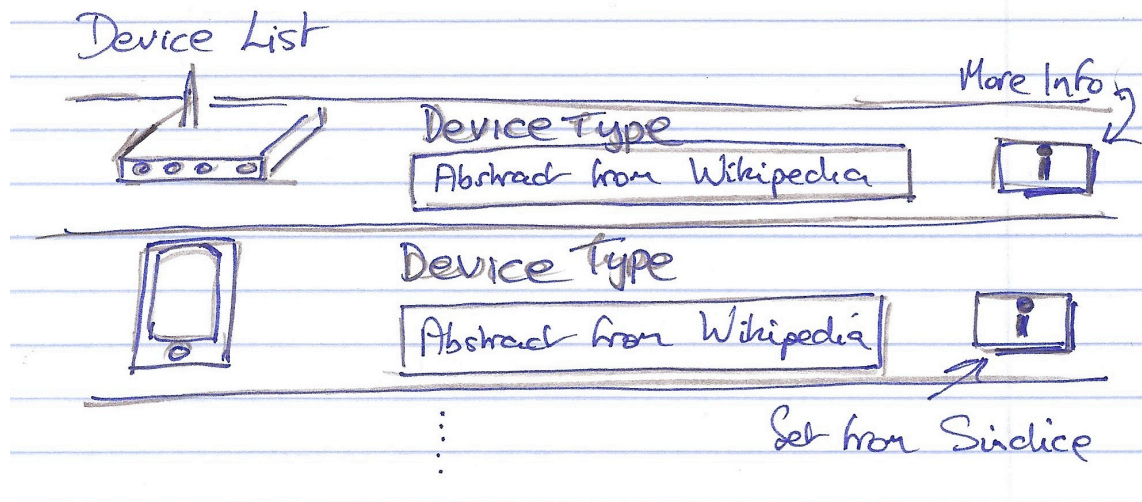 Device List
More Info
Device Type
Abstract from Wikipedia
i
Device Type
Abstract from Wikipedia
i
Get from Sindice